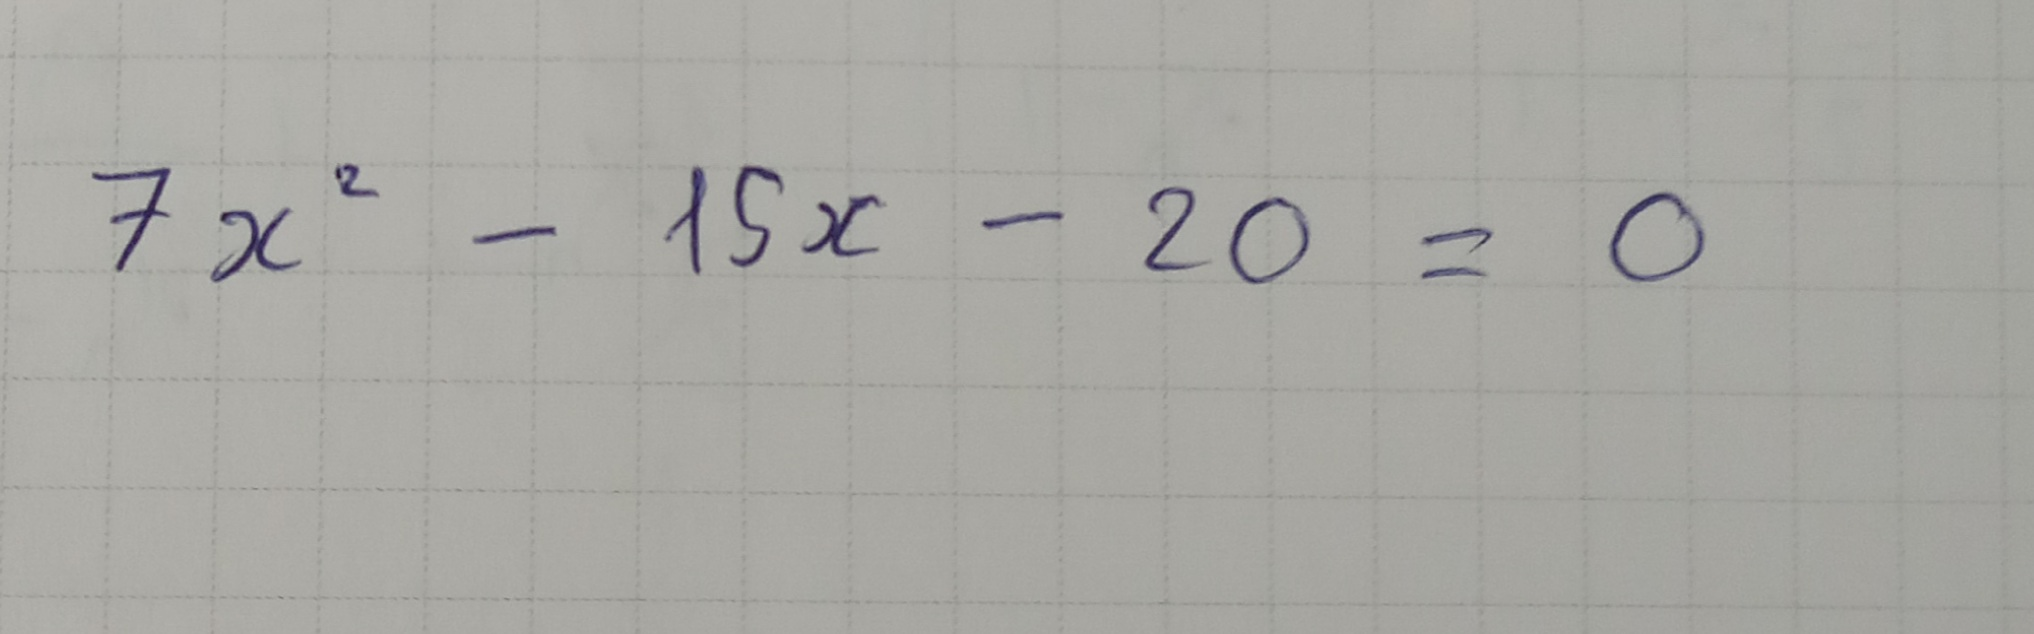 7x² - 15x - 20 = 0